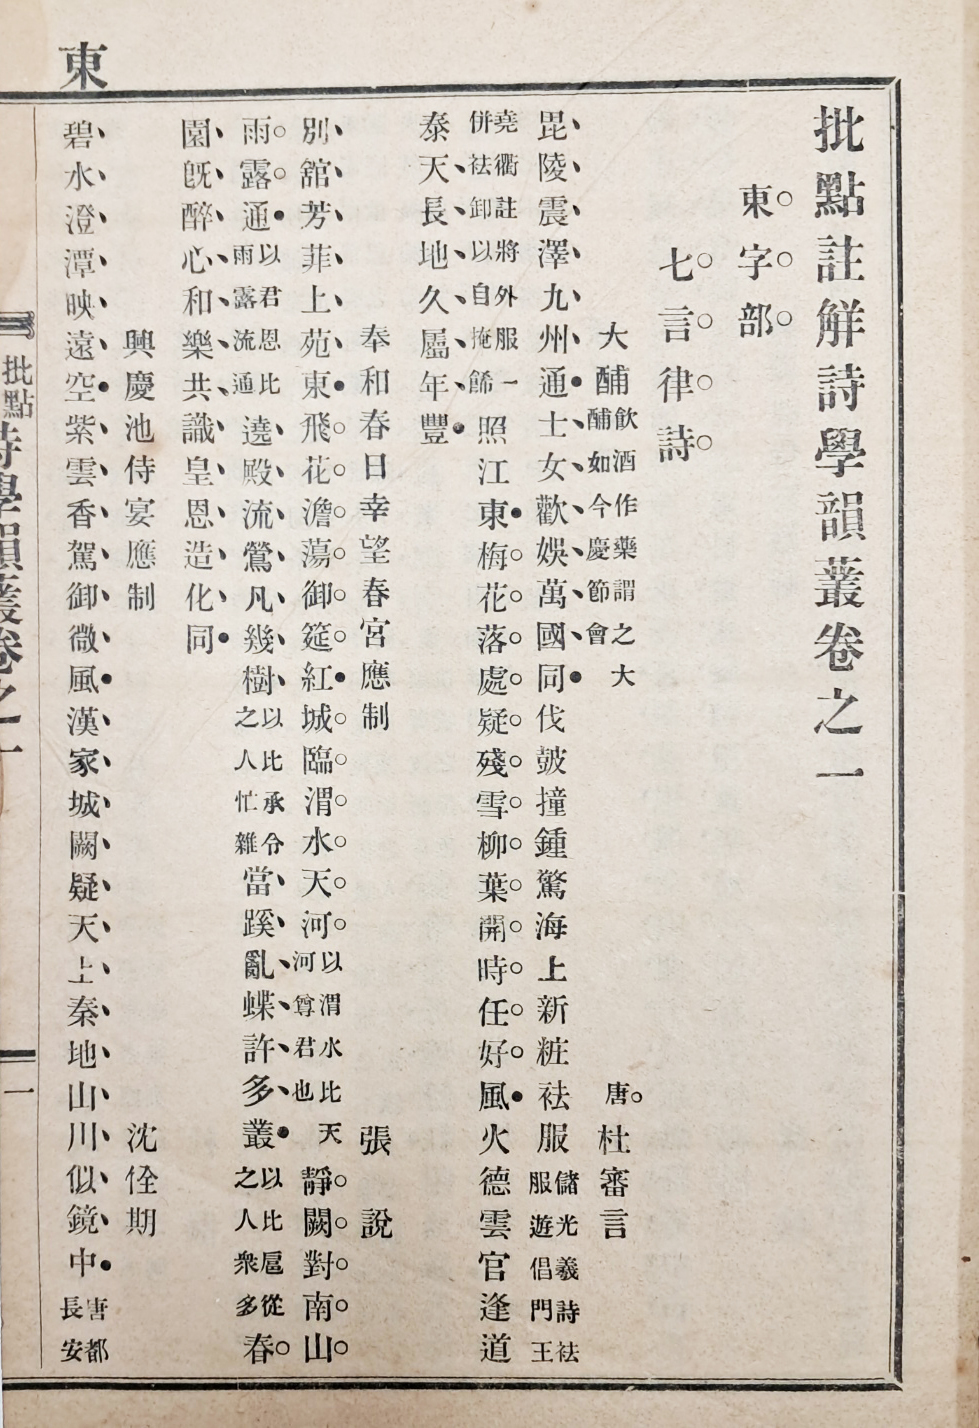 東
批點註觧詩學韻叢卷之一
東字部
七言律詩
大酺飲酒作藥謂之大酺如今慶節會 唐杜審言
毘陵震澤九州通士女歡娛萬國同伐皷撞鍾驚海上新粧袨服儲光羲詩袨服遊倡門王
堯衢註將外服一併袪卸以自掩餙照江東梅花落處疑殘雪柳葉開時任好風火德雲官逢道
泰天長地久屬年豐
奉和春日幸望春宮應制 張說
別舘芳菲上苑東飛花澹蕩御筵紅城臨渭水天河以渭水比天河尊君也靜闕對南山
雨露通以君恩比雨露流通遶殿流鶯凡幾樹以比承令之人忙雜當蹊亂蝶許多叢以比扈從之人衆多春
園旣醉心和樂共識皇恩造化同
興慶池侍宴應制 沈佺期
碧水澄潭映遠空紫雲香駕御微風漢家城闕疑天上秦地山川似鏡中唐都長安
批點詩學韻叢卷之一 一